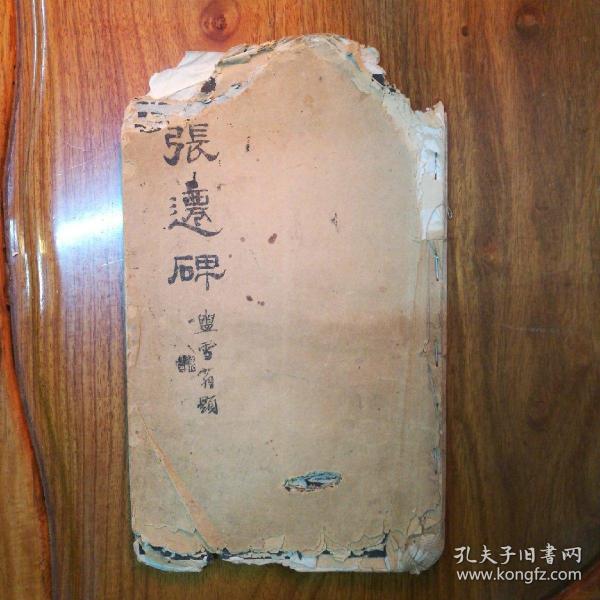 張遷碑
雪翁題
孔夫子旧書网
www.kongfz.com